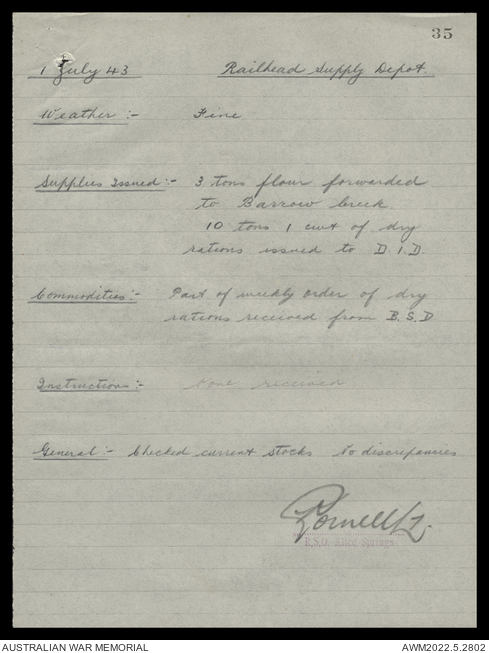 35
1 July 43 Railhead Supply Depot.
Weather :- Fine
Supplies Issued :- 3 tons flour forwarded
to Barrow Creek
10 tons 1 cwt of dry
rations issued to D.I.D.
Commodities :- Part of weekly order of dry
rations received from B.S.D
Instructions :- None received
General :- Checked current stocks No discrepancies
R.S.O. Alice Springs
AUSTRALIAN WAR MEMORIAL AWM2022.5.2802